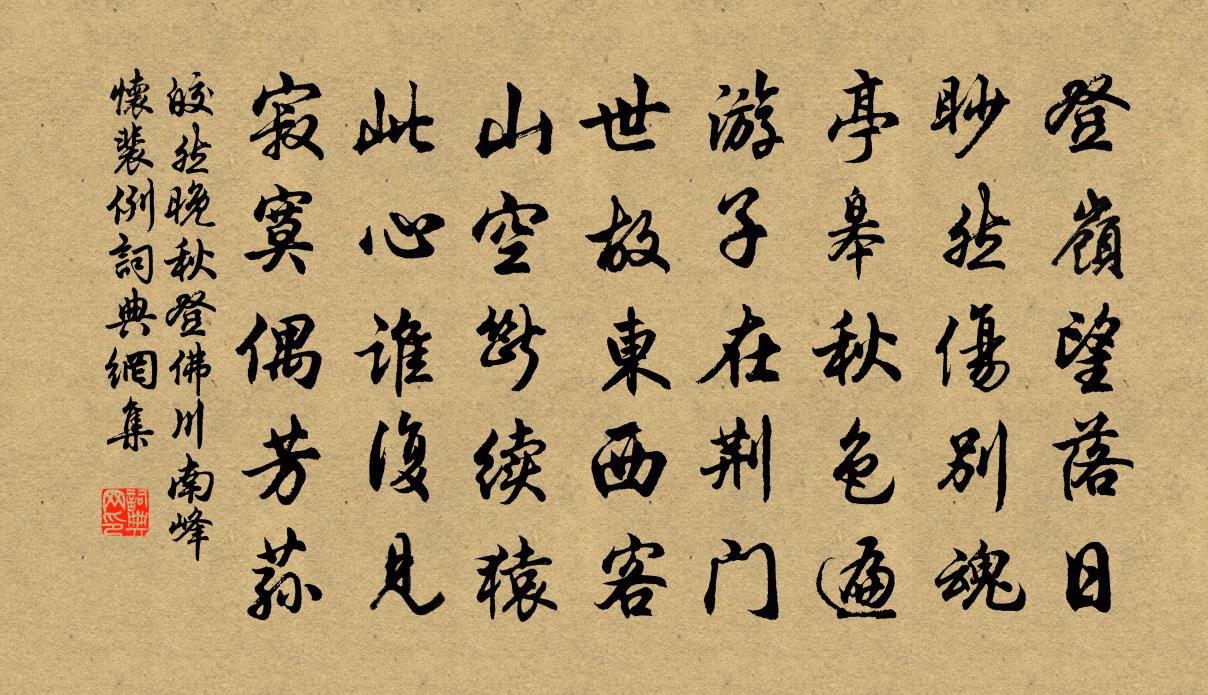 登嶺望落日
眇然傷別魂
亭皋秋色遍
游子在荆门
世故東西客
山空断续猿
此心谁復見
寂寞偶芳荪
皎然晚秋登佛川南峰
懷裴例詞典網集
詞典网印